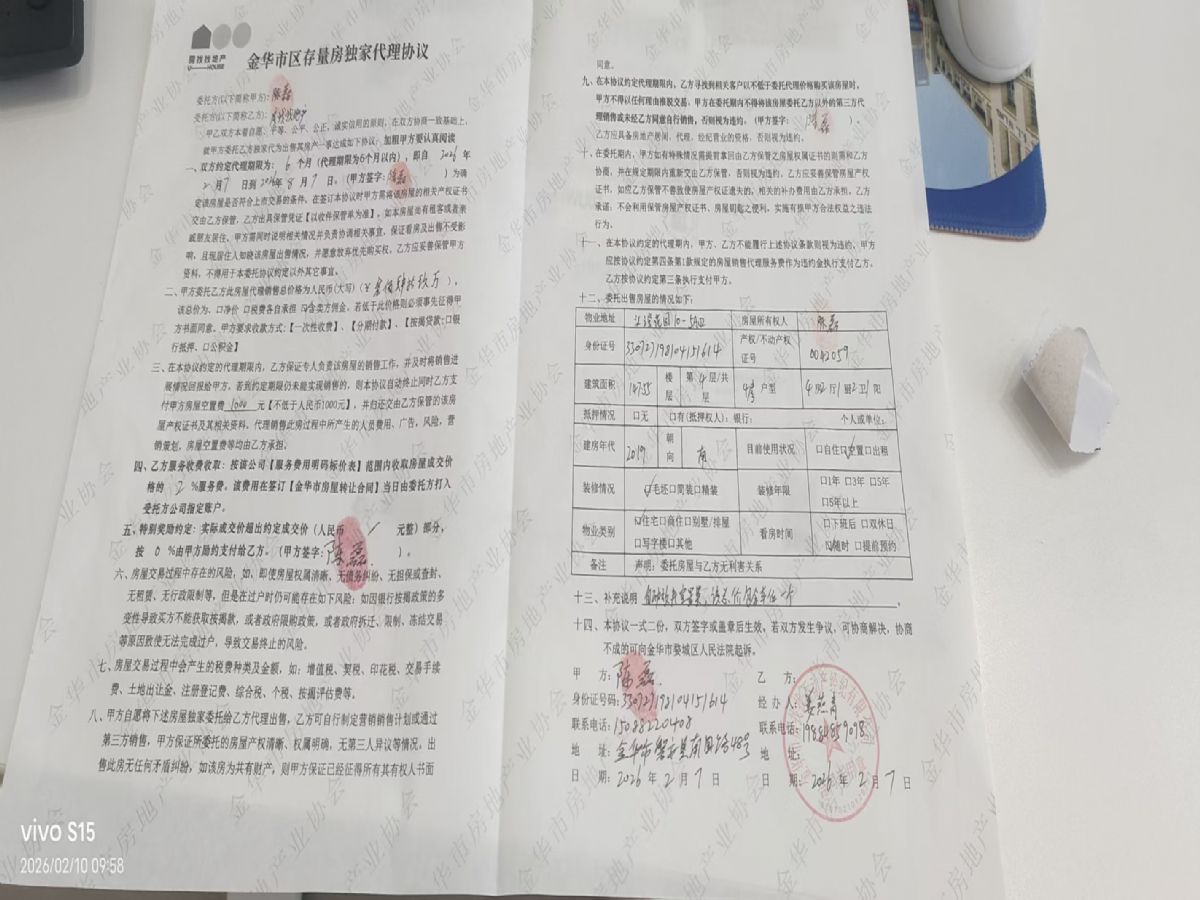 金华市区存量房独家代理协议
U-HOUSE
委托方(以下简称甲方):陈磊
受托方(以下简称乙方):
甲乙双方本着自愿、平等、公平、公正、诚实信用的原则，在双方协商一致基础上，
就甲方委托乙方独家代为出售其房产一事达成如下协议：加粗甲方要认真阅读
一、双方约定代理期限为：6 个月（代理期限为6个月以内），即自 2026 年
2月7日到2026年8月7日。（甲方签字：陈磊）为确
定该房屋是否符合上市交易的条件，在签订本协议时甲方需将该房屋的相关产权证书
交由乙方保管，乙方出具保管凭证【以收件保管单为准】。如本房屋尚有租客或者亲
戚朋友居住，甲方需同时说明相关情况并负责协调相关事宜，保证看房及出售不受影
响，且现居住人知晓该房屋出售情况，并愿意放弃优先购买权，乙方应妥善保管甲方
资料，不得用于本委托协议约定以外其它事宜。
二、甲方委托乙方此房屋代理销售总价格为人民币(大写)（￥壹佰肆拾玖万），
该总价为：口净价 口税费各自承担 口含卖方佣金，若低于此价格则必须事先征得甲
方书面同意。甲方要求收款方式：【一次性收费】、【分期付款】、【按揭贷款：口银
行抵押、口公积金】
三、在本协议约定的代理期限内，乙方保证专人负责该房屋的销售工作，并及时将销售进
展情况回报给甲方。若到约定期限仍未能实现销售的，则本协议自动终止同时乙方支
付甲方房屋空置费 1000 元【不低于人民币1000元】，并归还交由乙方保管的该房
屋产权证书及其相关资料。代理销售此房过程中所产生的人员费用、广告，风险，营
销策划，房屋空置费等均由乙方承担。
四、乙方服务收费收取：按该公司【服务费用明码标价表】范围内收取房屋成交价
格的 2 %服务费。该费用在签订【金华市房屋转让合同】当日由委托方打入
受托方公司指定账户。
五、特别奖励约定：实际成交价超出约定成交价（人民币 / 元整）部分，
按 0 %由甲方励约支付给乙方。（甲方签字：陈磊）。
六、房屋交易过程中存在的风险，如、即使房屋权属清晰、无债务纠纷、无担保或查封、
无租赁、无行政限制等，但是在过户时仍可能存在如下风险：如因银行按揭政策的多
变性导致买方不能获取按揭款，或者政府限购政策，或者政府拆迁、限制、冻结交易
等原因致使无法完成过户，导致交易终止的风险。
七、房屋交易过程中会产生的税费种类及金额，如：增值税、契税、印花税、交易手续
费、土地出让金、注册登记费、综合税、个税、按揭评估费等。
八、甲方自愿将下述房屋独家委托给乙方代理出售，乙方可自行制定营销销售计划或通过
第三方销售，甲方保证所委托的房屋产权清晰、权属明确，无第三人异议等情况，出
售此房无任何矛盾纠纷，如该房为共有财产，则甲方保证已经征得所有其有权人书面
同意。
九、在本协议约定代理期限内，乙方寻找到相关客户以不低于委托代理价格购买该房屋时，
甲方不得以任何理由推脱交易，甲方在委托期内不得将该房屋委托乙方以外的第三方代
理销售或未经乙方同意自行销售，否则视为违约。（甲方签字：陈磊）。
乙方应具备房地产居间、代理、经纪营业的资格，否则视为违约。
十、在委托期内，甲方如有特殊情况需提前拿回由乙方保管之房屋权属证书的则需和乙方
协商，并在规定期限内重新交由乙方保管，否则视为违约，乙方应妥善保管房屋产权
证书，如应乙方保管不善致使房屋产权证遗失的，相关的补办费用由乙方承担。乙方
承诺：不会利用保管房屋产权证书、房屋钥匙之便利，实施有损甲方合法权益之违法
行为。
十一、在本协议约定的代理期内，甲方、乙方不能履行上述协议条款则视为违约，甲方
应按协议约定第四条第1款规定的房屋销售代理服务费作为违约金执行支付乙方。
乙方按协议约定第三条执行支付甲方。
十二、委托出售房屋的情况如下：
物业地址 10-5A 房屋所有权人 陈磊
身份证号 330727198104151614 产权/不动产权证号 0042059
建筑面积 147.55 楼层 第 4 层/共 层 户型 4房2厅1厨2卫1阳
抵押情况 口无 口有(抵押权人)：银行： 个人或单位：
建房年代 2019 朝向 南 目前使用状况 口自住口空置口出租
装修情况 口毛坯口简装口精装 装修年限 口1年 口3年 口5年
口5年以上
物业类别 口住宅口商住口别墅/排屋
口写字楼口其他 看房时间 口下班后 口双休日
口随时 口提前预约
备注 声明：委托房屋与乙方无利害关系
十三、补充说明
十四、本协议一式二份，双方签字或盖章后生效，若双方发生争议，可协商解决，协商
不成的可向金华市婺城区人民法院起诉。
甲 方：陈磊 乙 方：
身份证号码：330727198104151614 经 办 人：姜燕青
联系电话：15088220408 联系电话：19884859098
地 址：金华市磐安县南园路48号 地 址：
日 期：2026 年 2 月 7 日 日 期：2026 年 2 月 7 日
vivo S15
2026/02/10 09:58